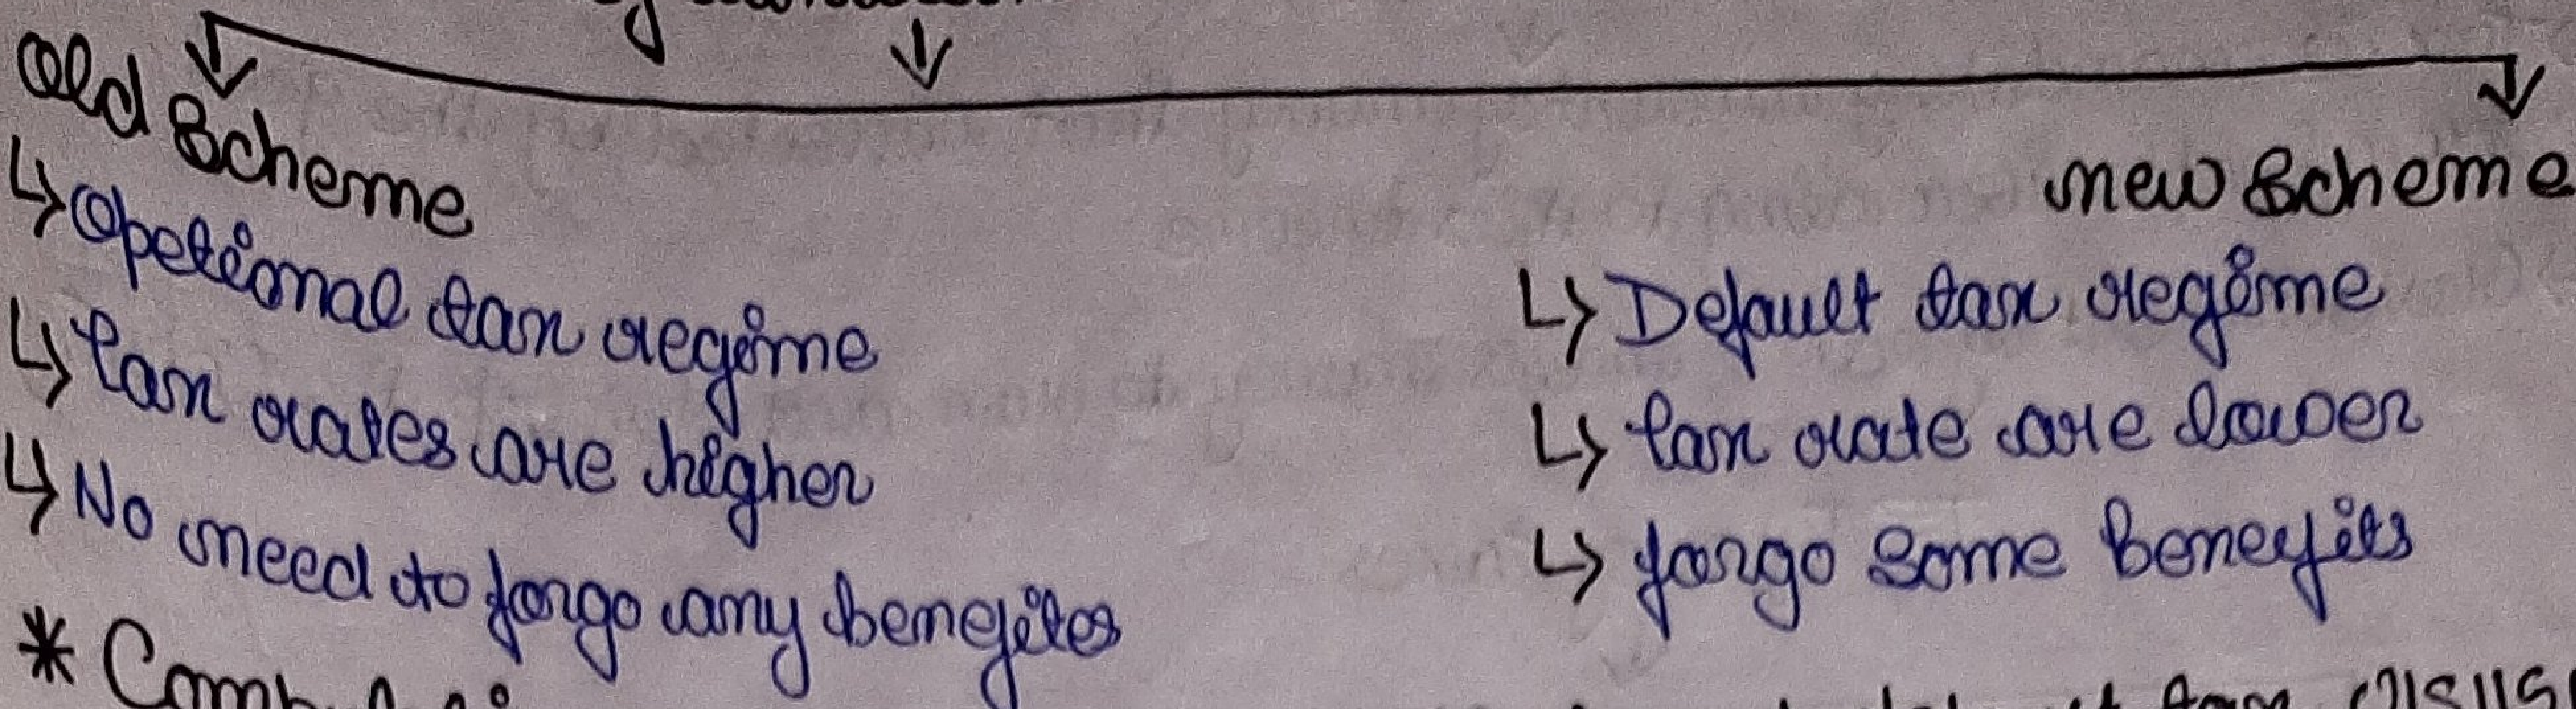 Old Scheme
↳ Opetional tax regime
↳ Tax rates are higher
↳ No need to forgo any benefites
new Scheme
↳ Default tax regime
↳ Tax rate are lower
↳ forgo some Benefits
*